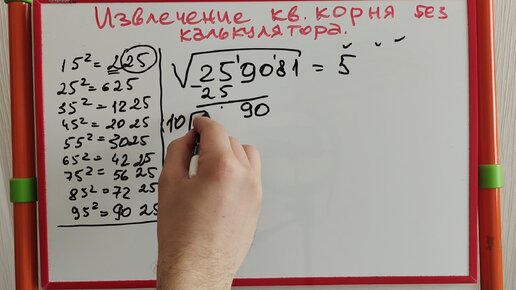 Извлечение кв. корня без
калькулятора.
15² = 225
25² = 625
35² = 1225
45² = 2025
55² = 3025
65² = 4225
75² = 5625
85² = 7225
95² = 9025
√25'90'81 = 5
25
90
10